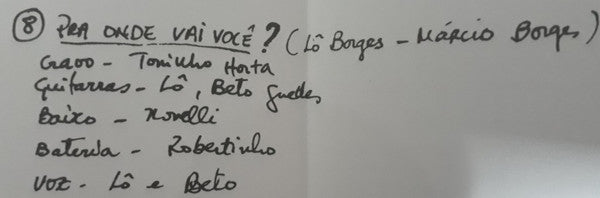 ⑧ PRA ONDE VAI VOCÊ? (Lô Borges - MÁRCIO Borges)
Cravo - Toninho Horta
Guitarras - Lô, Beto Guedes
Baixo - Novelli
Bateria - Robertinho
VOZ - Lô e Beto